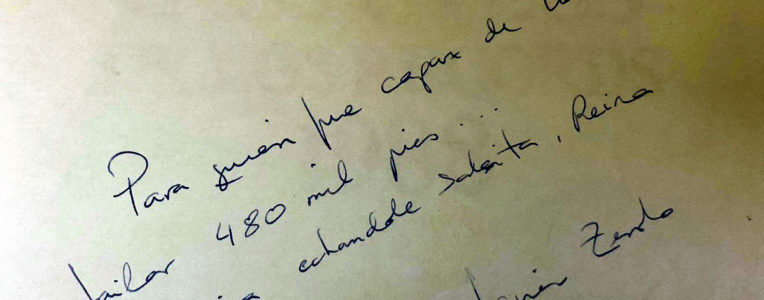 Para quien fue capax de
bailar 480 mil pies...
echandole salsita, Reina
Zerdo